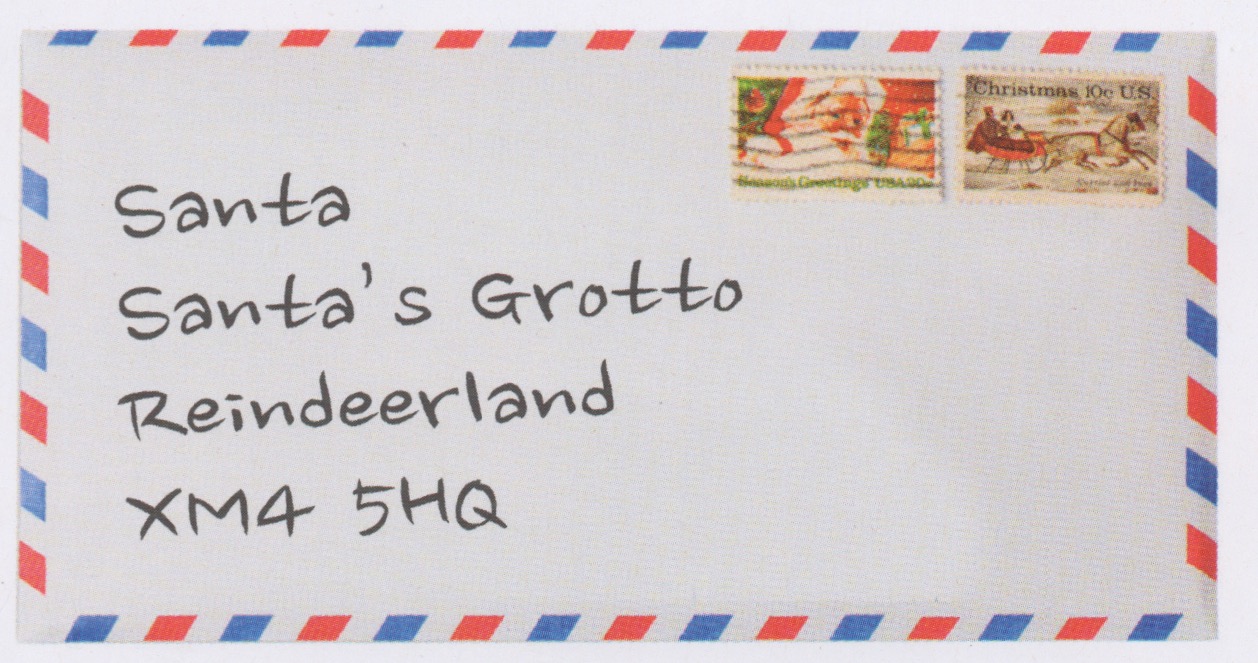 Christmas 10c U.S.
Season's Greetings USA 20c
Santa
Santa's Grotto
Reindeerland
XM4 5HQ